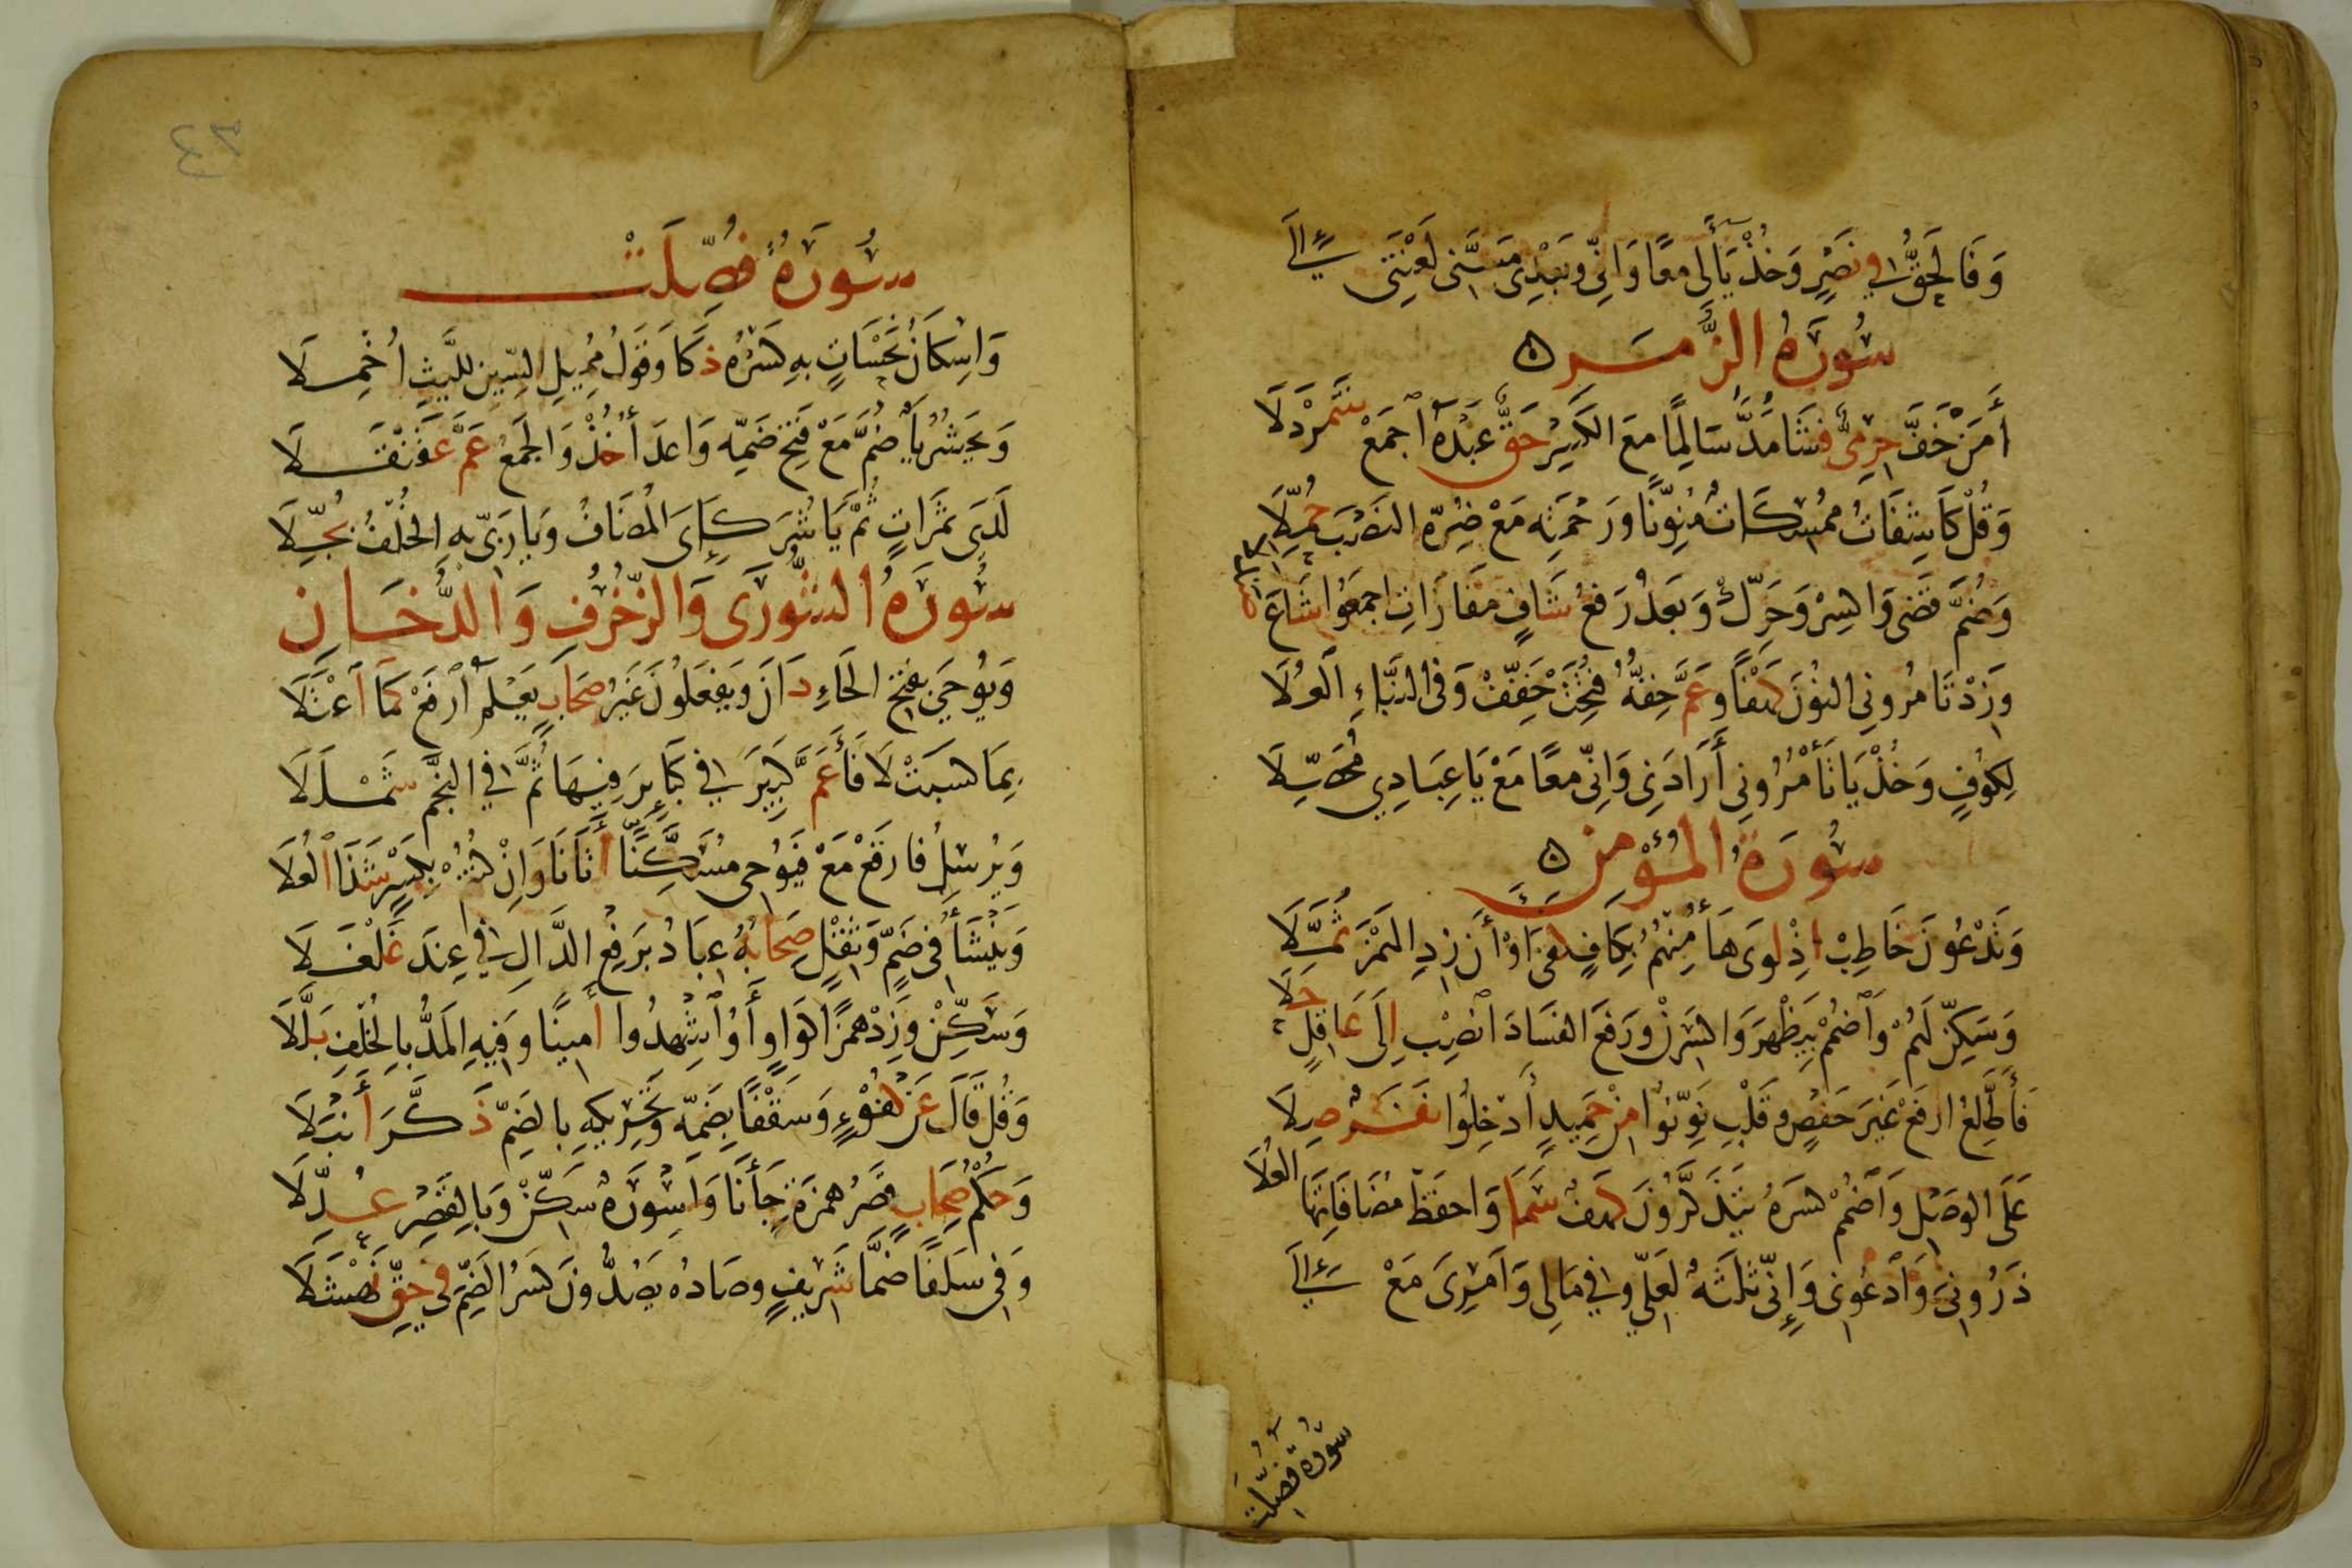 وَفَالْحَقُّ فِي نَصْرٍ وَخُذْ يَاءَ لِي مَعًا وَاِنِّي وَبَعْدِي مَسَّنِي لَعْنَتِي اِلَى
سُورَةُ الزُّمَرِ
أَمَنْ خَفَّ حِرْمِيٌّ فَشَا مَدَّ سَالِمًا مَعَ الْكَسْرِ حَقٌّ عَبْدَهُ اجْمَعْ شَمَرْدَلَا
وَقُلْ كَاشِفَاتُ مُمْسِكَاتٌ مُنَوِّنًا وَرَحْمَتِهِ مَعْ ضُرِّهِ النَّصْبَ حُمِّلَا
وَضُمَّ قَضَى وَاكْسِرْ وَحَرِّكْ وَبَعْدُ رَفْعُ شَافٍ مَفَازَاتِ اجْمَعُوا شَاعَ
صَنْدَلَا
وَزِدْ تَامُرُونِي النُّونَ كَهْفًا وَعَمَّ خِفُّهُ فُتِحَتْ خَفِّفْ وَفِي النَّبَاءِ الْعُلَا
لِكُوفٍ وَخُذْ يَا تَأْمُرُونِي أَرَادَنِي وَاِنِّي مَعًا مَعْ يَا عِبَادِي مُحَصِّلَا
سُورَةُ الْمُؤْمِنِ
وَتَدْعُونَ خَاطِبْ اِذْ لَوَى هَاءُ مِنْهُمُ بِكَافٍ كَفَى اَوْ أَنْ زِدِ الْهَمْزَ ثُمَّلَا
وَسَكِّنْ لَهُمْ وَاضْمُمْ بِيَظْهَرَ وَاكْسِرَنْ وَرَفْعَ الْفَسَادَ انْصِبْ اِلَى عَاقِلٍ
حَلَا
فَأَطَّلِعُ ارْفَعْ غَيْرَ حَفْصٍ وَقَلْبِ نَوِّنُوا مِنْ حَمِيدٍ أَدْخِلُوا نَفَرٌ صِلَا
عَلَى الْوَصْلِ وَاضْمُمْ كَسْرَهُ يَتَذَكَّرُونَ كَهْفٌ سَمَا وَاحْفَظْ مُضَافَاتِهَا
الْعُلَا
ذَرُونِيَ وَادْعُونِي وَإِنِّي ثَلَثَةٌ لَعَلِّي وَفِي مَالِي وَأَمْرِيَ مَعْ اِلَى
سُورَةُ فُصِّلَتْ
٤٣
سُورَةُ فُصِّلَتْ
وَاِسْكَانُ نَحْسَاتٍ بِهِ كَسْرُهُ ذَكَا وَقَوْلُ مُمِيلِ السِّينِ لِلَّيْثِ اُخْمِلَا
وَنَحْشُرُ يَاءٌ ضُمَّ مَعْ فَتْحِ ضَمِّهِ وَاَعْدَاءُ خُذْ وَالْجَمْعُ عَمَّ عَقَنْقَلَا
لَدَى ثَمَرَاتٍ ثُمَّ يَا شُرَكَاءِيَ الْمُضَافُ وَيَا رَبِّي بِهِ الْخُلْفُ بُجِّلَا
سُورَةُ الشُّورَى وَالزُّخْرُفِ وَالدُّخَانِ
وَيُوحَى بِفَتْحِ الْحَاءِ دَانَ وَيَفْعَلُونَ غَيْرُ صِحَابٍ يَعْلَمَ ارْفَعْ كَمَا اعْتَلَا
بِمَا كَسَبَتْ لَا فَاءَ عَمَّ كَبِيرَ فِي كَبَائِرَ فِيهَا ثُمَّ فِي النَّجْمِ شَمْلَلَا
وَيُرْسِلُ فَارْفَعْ مَعْ فَيُوحِي مُسَكِّنًا أَتَانَا وَاِنْ كُنْتُمْ بِكَسْرٍ شَذَا الْعُلَا
وَيَنْشَأُ فِي ضَمٍّ وَثِقْلٍ صِحَابُهُ عِبَادُ بِرَفْعِ الدَّالِ فِي عِنْدَ غَلْغَلَا
وَسَكِّنْ وَزِدْ هَمْزًا كَوَاوٍ أَؤُشْهِدُوا أَمِينًا وَفِيهِ الْمَدُّ بِالْخُلْفِ بَلَّلَا
وَقُلْ قَالَ عَنْ كُفْؤٍ وَسَقْفًا بِضَمِّهِ وَتَحْرِيكِهِ بِالضَّمِّ ذَكَّرَ أَنْبَلَا
وَحُكْمُ صِحَابٍ قَصْرُ هَمْزَةِ جَاءَنَا وَاَسْوِرَةٌ سَكِّنْ وَبِالْقَصْرِ عُدِّلَا
وَفِي سَلَفًا ضَمَّا شَرِيفٍ وَصَادُهُ يَصُدُّونَ كَسْرُ الضَّمِّ فِي حَقِّ نَهْشَلَا